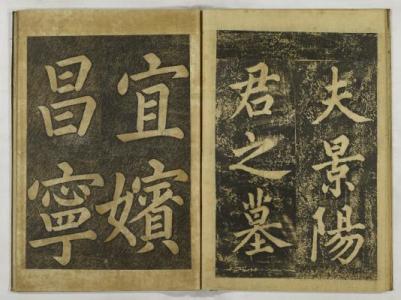 夫景陽
君之墓
宜嬪
昌寧